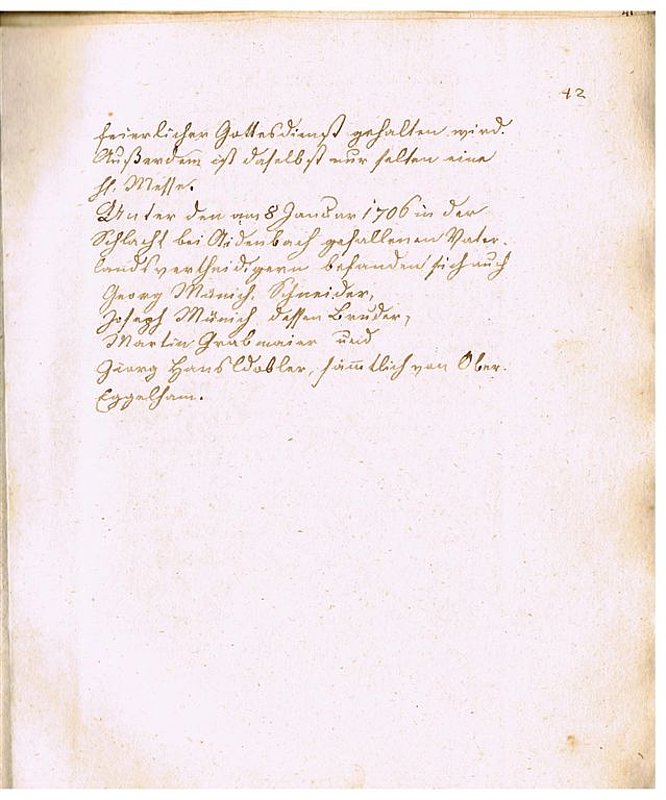 42
feierlicher Gottesdienst gehalten wird.
Außerdem ist daselbst nur selten eine
hl. Messe.
Unter den am 8 Januar 1706 in der
Schlacht bei Aidenbach gefallenen Vater-
landsvertheidigern befanden sich auch
Georg Münich, Schneider,
Joseph Münich dessen Bruder,
Martin Grabmaier und
Georg Hansldobler, sämmtlich von Ober-
Eggelham.